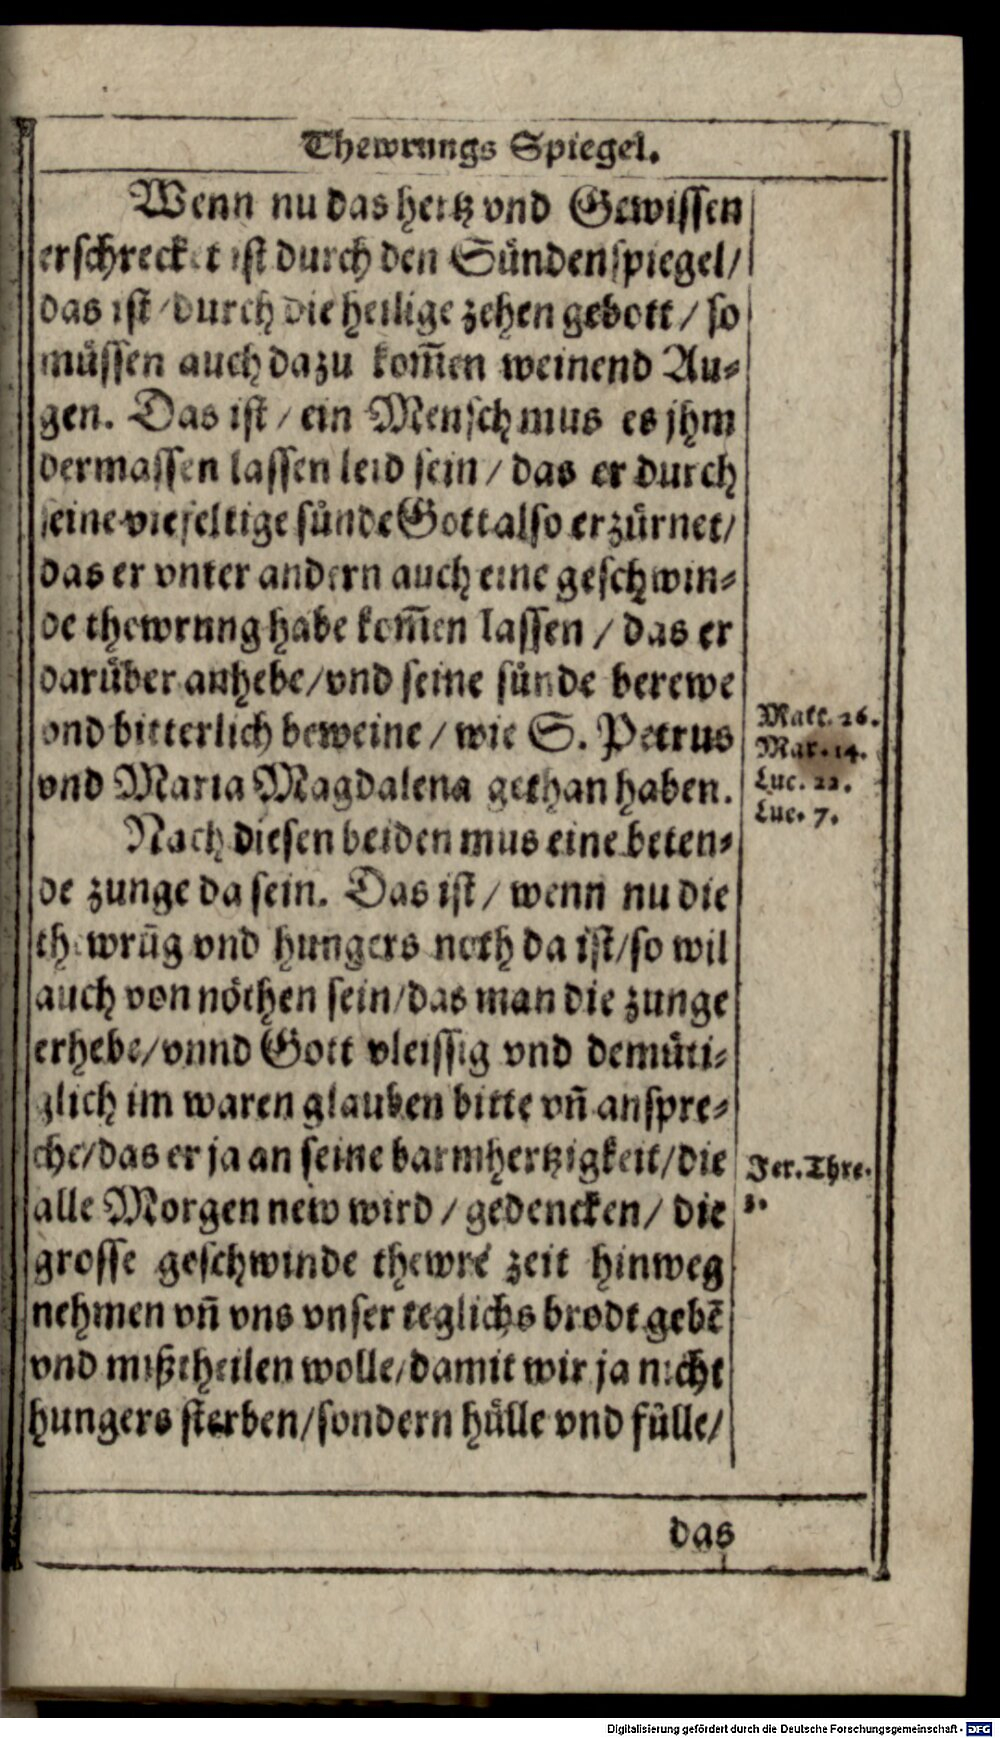 Thewrungs Spiegel.
Wenn nu das hertz vnd Gewissen
erschrecket ist durch den Sündenspiegel/
das ist/durch die heilige zehen gebott/ so
müssen auch dazu kom̃en weinend Au⸗
gen. Das ist/ ein Mensch mus es jhm
dermassen lassen leid sein/ das er durch
seine vielfeltige sünde Gott also erzürnet/
das er vnter andern auch eine geschwin⸗
de thewrung habe kom̃en lassen/ das er
darüber anhebe/vnd seine sünde berewe
vnd bitterlich beweine/ wie S. Petrus
vnd Maria Magdalena gethan haben.
Matt. 26.
Mar. 14.
Luc. 22.
Luc. 7.
Nach diesen beiden mus eine beten⸗
de zunge da sein. Das ist/ wenn nu die
thewrũg vnd hungers noth da ist/so wil
auch von nöthen sein/das man die zunge
erhebe/vnnd Gott vleissig vnd demüti⸗
glich im waren glauben bitte vñ anspre⸗
che/das er ja an seine barmhertzigkeit/die
alle Morgen new wird/ gedencken/ die
grosse geschwinde thewre zeit hinweg
nehmen vñ vns vnser teglichs brodt gebẽ
vnd mißtheilen wolle/damit wir ja nicht
hungers sterben/sondern hülle vnd fülle/
Jer. Thre.
3.
das
Digitalisierung gefördert durch die Deutsche Forschungsgemeinschaft - DFG